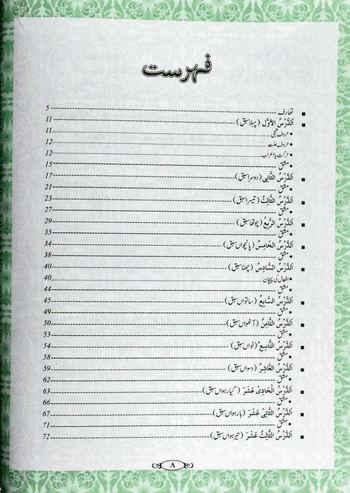 فہرست
تعارف 5
اَلدَّرْسُ الْأَوَّلُ (پہلا سبق) 11
حروف تہجی 11
حروف علت 12
حرکت یا اعراب 12
مشق 15
اَلدَّرْسُ الثَّانِی (دوسرا سبق) 17
مشق 21
اَلدَّرْسُ الثَّالِثُ (تیسرا سبق) 23
مشق 27
اَلدَّرْسُ الرَّابِعُ (چوتھا سبق) 29
مشق 33
اَلدَّرْسُ الْخَامِسُ (پانچواں سبق) 34
مشق 38
اَلدَّرْسُ السَّادِسُ (چھٹا سبق) 40
افعال کی پہچان 40
مشق 44
اَلدَّرْسُ السَّابِعُ (ساتواں سبق) 45
مشق 49
اَلدَّرْسُ الثَّامِنُ (آٹھواں سبق) 50
مشق 54
اَلدَّرْسُ التَّاسِعُ (نواں سبق) 54
مشق 58
اَلدَّرْسُ الْعَاشِرُ (دسواں سبق) 59
مشق 62
اَلدَّرْسُ الْحَادِیْ عَشَرَ (گیارہواں سبق) 63
مشق 66
اَلدَّرْسُ الثَّانِیْ عَشَرَ (بارہواں سبق) 67
مشق 71
اَلدَّرْسُ الثَّالِثُ عَشَرَ (تیرہواں سبق) 72
۸